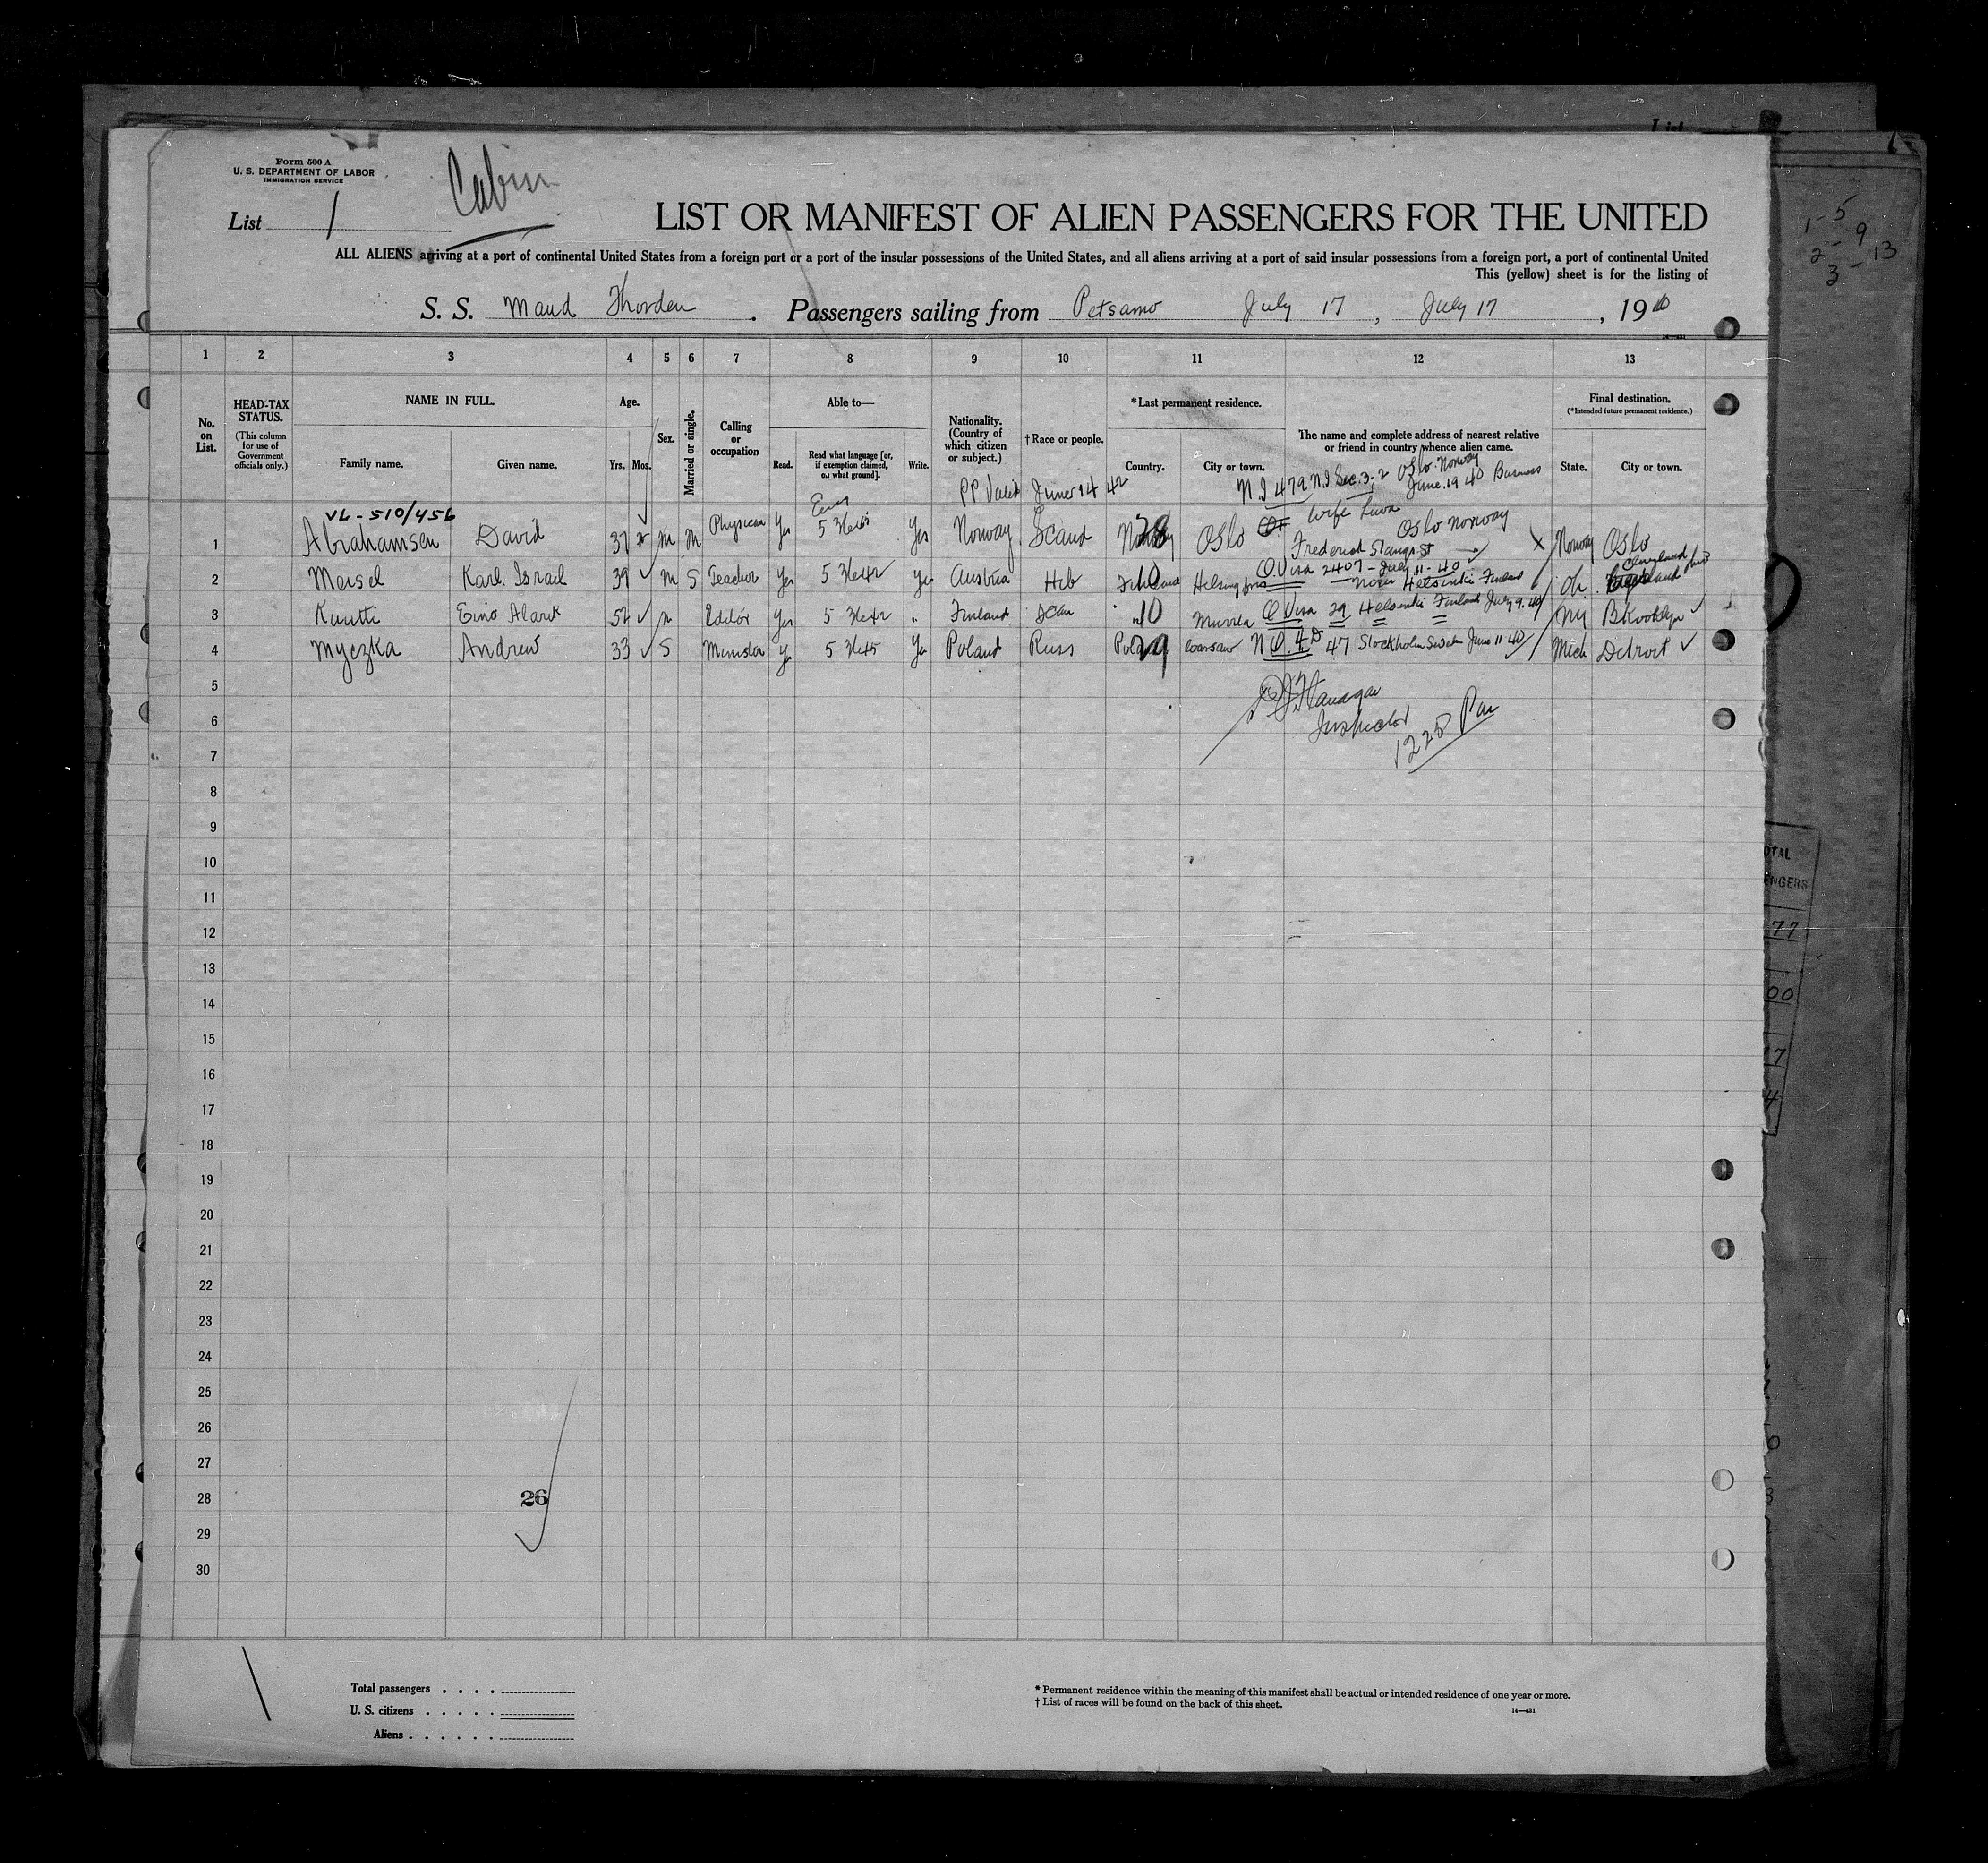 Form 500 A
U. S. DEPARTMENT OF LABOR
IMMIGRATION SERVICE
Cabin
List 1
LIST OR MANIFEST OF ALIEN PASSENGERS FOR THE UNITED
ALL ALIENS arriving at a port of continental United States from a foreign port or a port of the insular possessions of the United States, and all aliens arriving at a port of said insular possessions from a foreign port, a port of continental United
This (yellow) sheet is for the listing of
S. S. Maud Thorden . Passengers sailing from Petsamo July 17 , July 17 , 19 40
1 2 3 4 5 6 7 8 9 10 11 12 13
No. on List.
HEAD-TAX STATUS.
(This column for use of Government officials only.)
NAME IN FULL.
Family name. Given name.
Age.
Yrs. Mos.
Sex.
Married or single.
Calling or occupation
Able to—
Read. Read what language [or, if exemption claimed, on what ground]. Write.
Nationality. (Country of which citizen or subject.)
†Race or people.
*Last permanent residence.
Country. City or town.
The name and complete address of nearest relative or friend in country whence alien came.
Final destination.
(*Intended future permanent residence.)
State. City or town.
PP Valid June 14 42 N.I 479 N.I Sec. 3-2 Oslo. Norway
June. 19 40 Business
VL-510/456
1 Abrahamsen David 37 M M Physician Yes 5 Yes Norway Scand Norway 28 Oslo Wife
Oslo Norway
St X Norway Oslo
2 Meisel Karl. Israel 39 M S Teacher Yes 5 Yes Austria Heb 10 Helsingfors Q. Visa 2407 - July 11-40 Helsinki Finland Oh. Cleveland
3 Eino 52 m Editor Yes 5 " Finland Scan 10 Q Visa 29 Helsinki Finland July 9. 40 NY Brooklyn
4 Myczka Andrew 33 S Minister 5 Poland Russ Poland 29 Warsaw N Q. 4 D 47 Stockholm June 11 40 Mich Detroit
5
Flanagan
6
Inspector
1225 Pm
7
8
9
10
11
12
13
14
15
16
17
18
19
20
21
22
23
24
25
26
27
28 26
29
30
Total passengers . . . .
U. S. citizens . . . . .
Aliens . . . . . .
* Permanent residence within the meaning of this manifest shall be actual or intended residence of one year or more.
† List of races will be found on the back of this sheet.
14—431
1-5
2-9
3-13
77
00